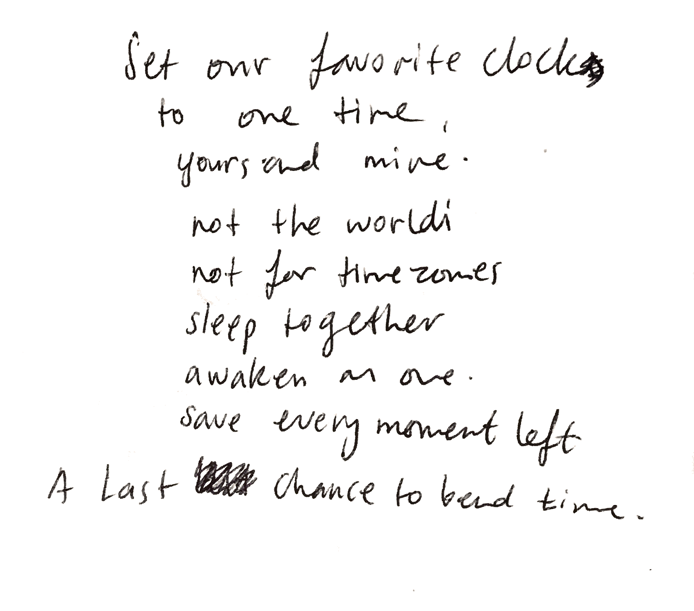 Set our favorite clock
to one time,
yours and mine.
not the world
not for timezones
sleep together
awaken as one.
save every moment left
A Last chance to bend time.